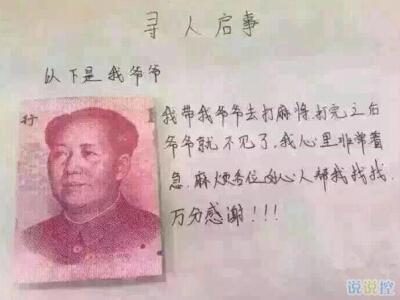 寻人启事
以下是我爷爷
行
我带我爷爷去打麻将,打完之后
爷爷就不见了,我心里非常着
急,麻烦各位好心人帮我找找,
万分感谢!!!
说说控